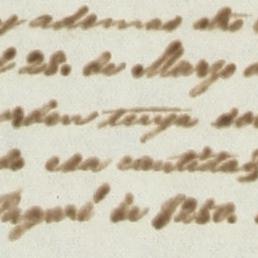 y ademas
28. de Março
orden tuya
esa cantidad
Pagaré de 1250.